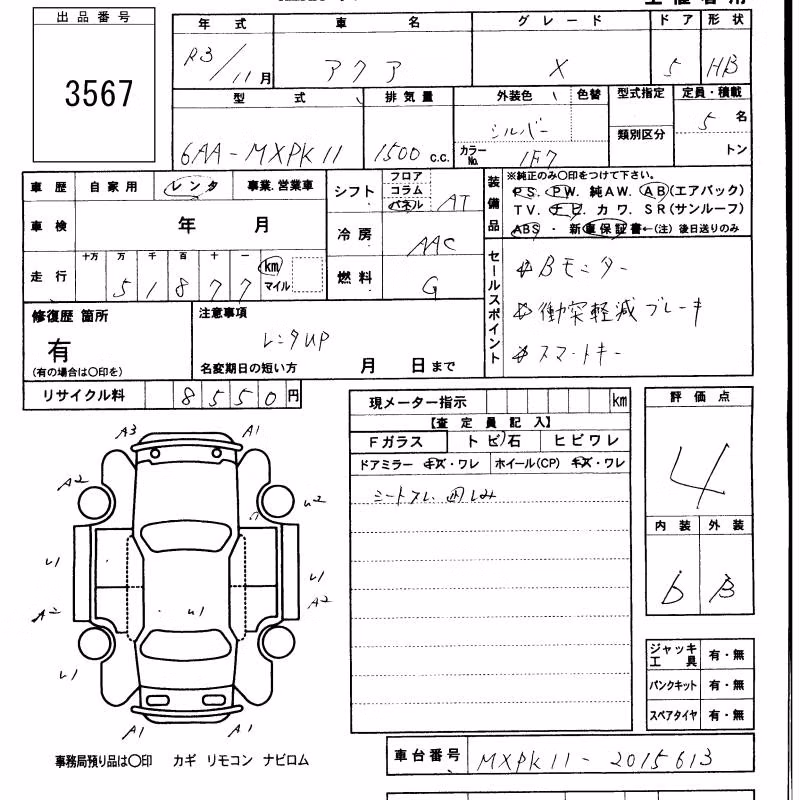 出品番号
3567
年式 車名 グレード ドア 形状
R3/11月 アクア X 5 HB
型式 排気量 外装色 色替 型式指定 定員・積載
6AA-MXPK11 1500c.c. シルバー カラーNo. 1F7 類別区分 5名 トン
車歴 自家用 レンタ 事業.営業車
車検 年 月
走行 十万 万 千 百 十 一
51877 km マイル
シフト フロア コラム パネル AT
冷房 AAC
燃料 G
装備品
※純正のみ〇印をつけて下さい。
PS. PW. 純AW. AB(エアバック)
TV. ナビ. カワ. SR(サンルーフ)
ABS ・ 新車保証書←(注)後日送りのみ
セールスポイント
Bモニター
衝突軽減ブレーキ
スマートキー
修復歴 箇所
有
(有の場合は〇印を)
注意事項
レンタUP
名変期日の短い方 月 日まで
リサイクル料 8550円
現メーター指示 km
【査定員記入】
Fガラス トビ石 ヒビワレ
ドアミラー キズ・ワレ ホイール(CP) キズ・ワレ
シートスレ 凹 しみ
評価点
4
内装 外装
b B
ジャッキ工具 有・無
パンクキット 有・無
スペアタイヤ 有・無
A3 A1
A2 U2
U1 U1
U1
A2 A2
U1
A1 A1
事務局預り品は〇印 カギ リモコン ナビロム
車台番号 MXPK11-2015613